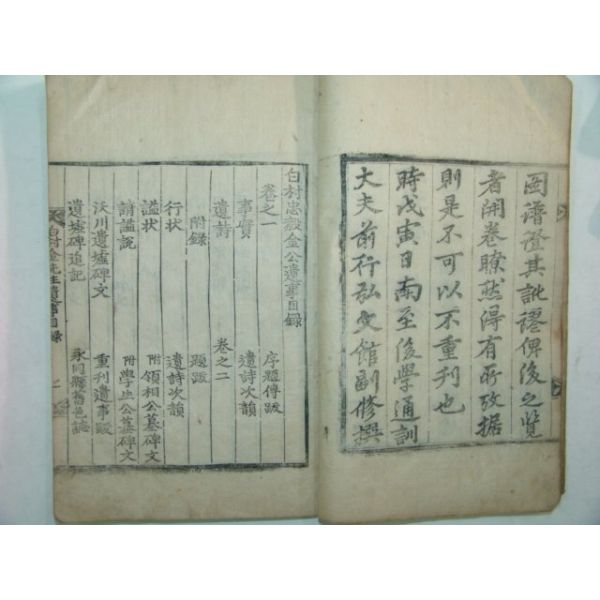 図譜證其訛謬俾後之覽
者開卷瞭然得有所攷据
則是不可以不重刊也
時戊寅日南至後學通訓
大夫前行弘文館副修撰
白村忠毅金公遺事目録
卷之一
序題傳跋
事實
遺詩次韻
遺詩
卷之二
附録
題跋
行状
遺詩次韻
謚状
附領相公墓碑文
請謚説
附學生公墓碑文
沃川遺墟碑文
重刊遺事跋
遺墟碑追記
永同縣舊邑誌
白村金先生遺事目録